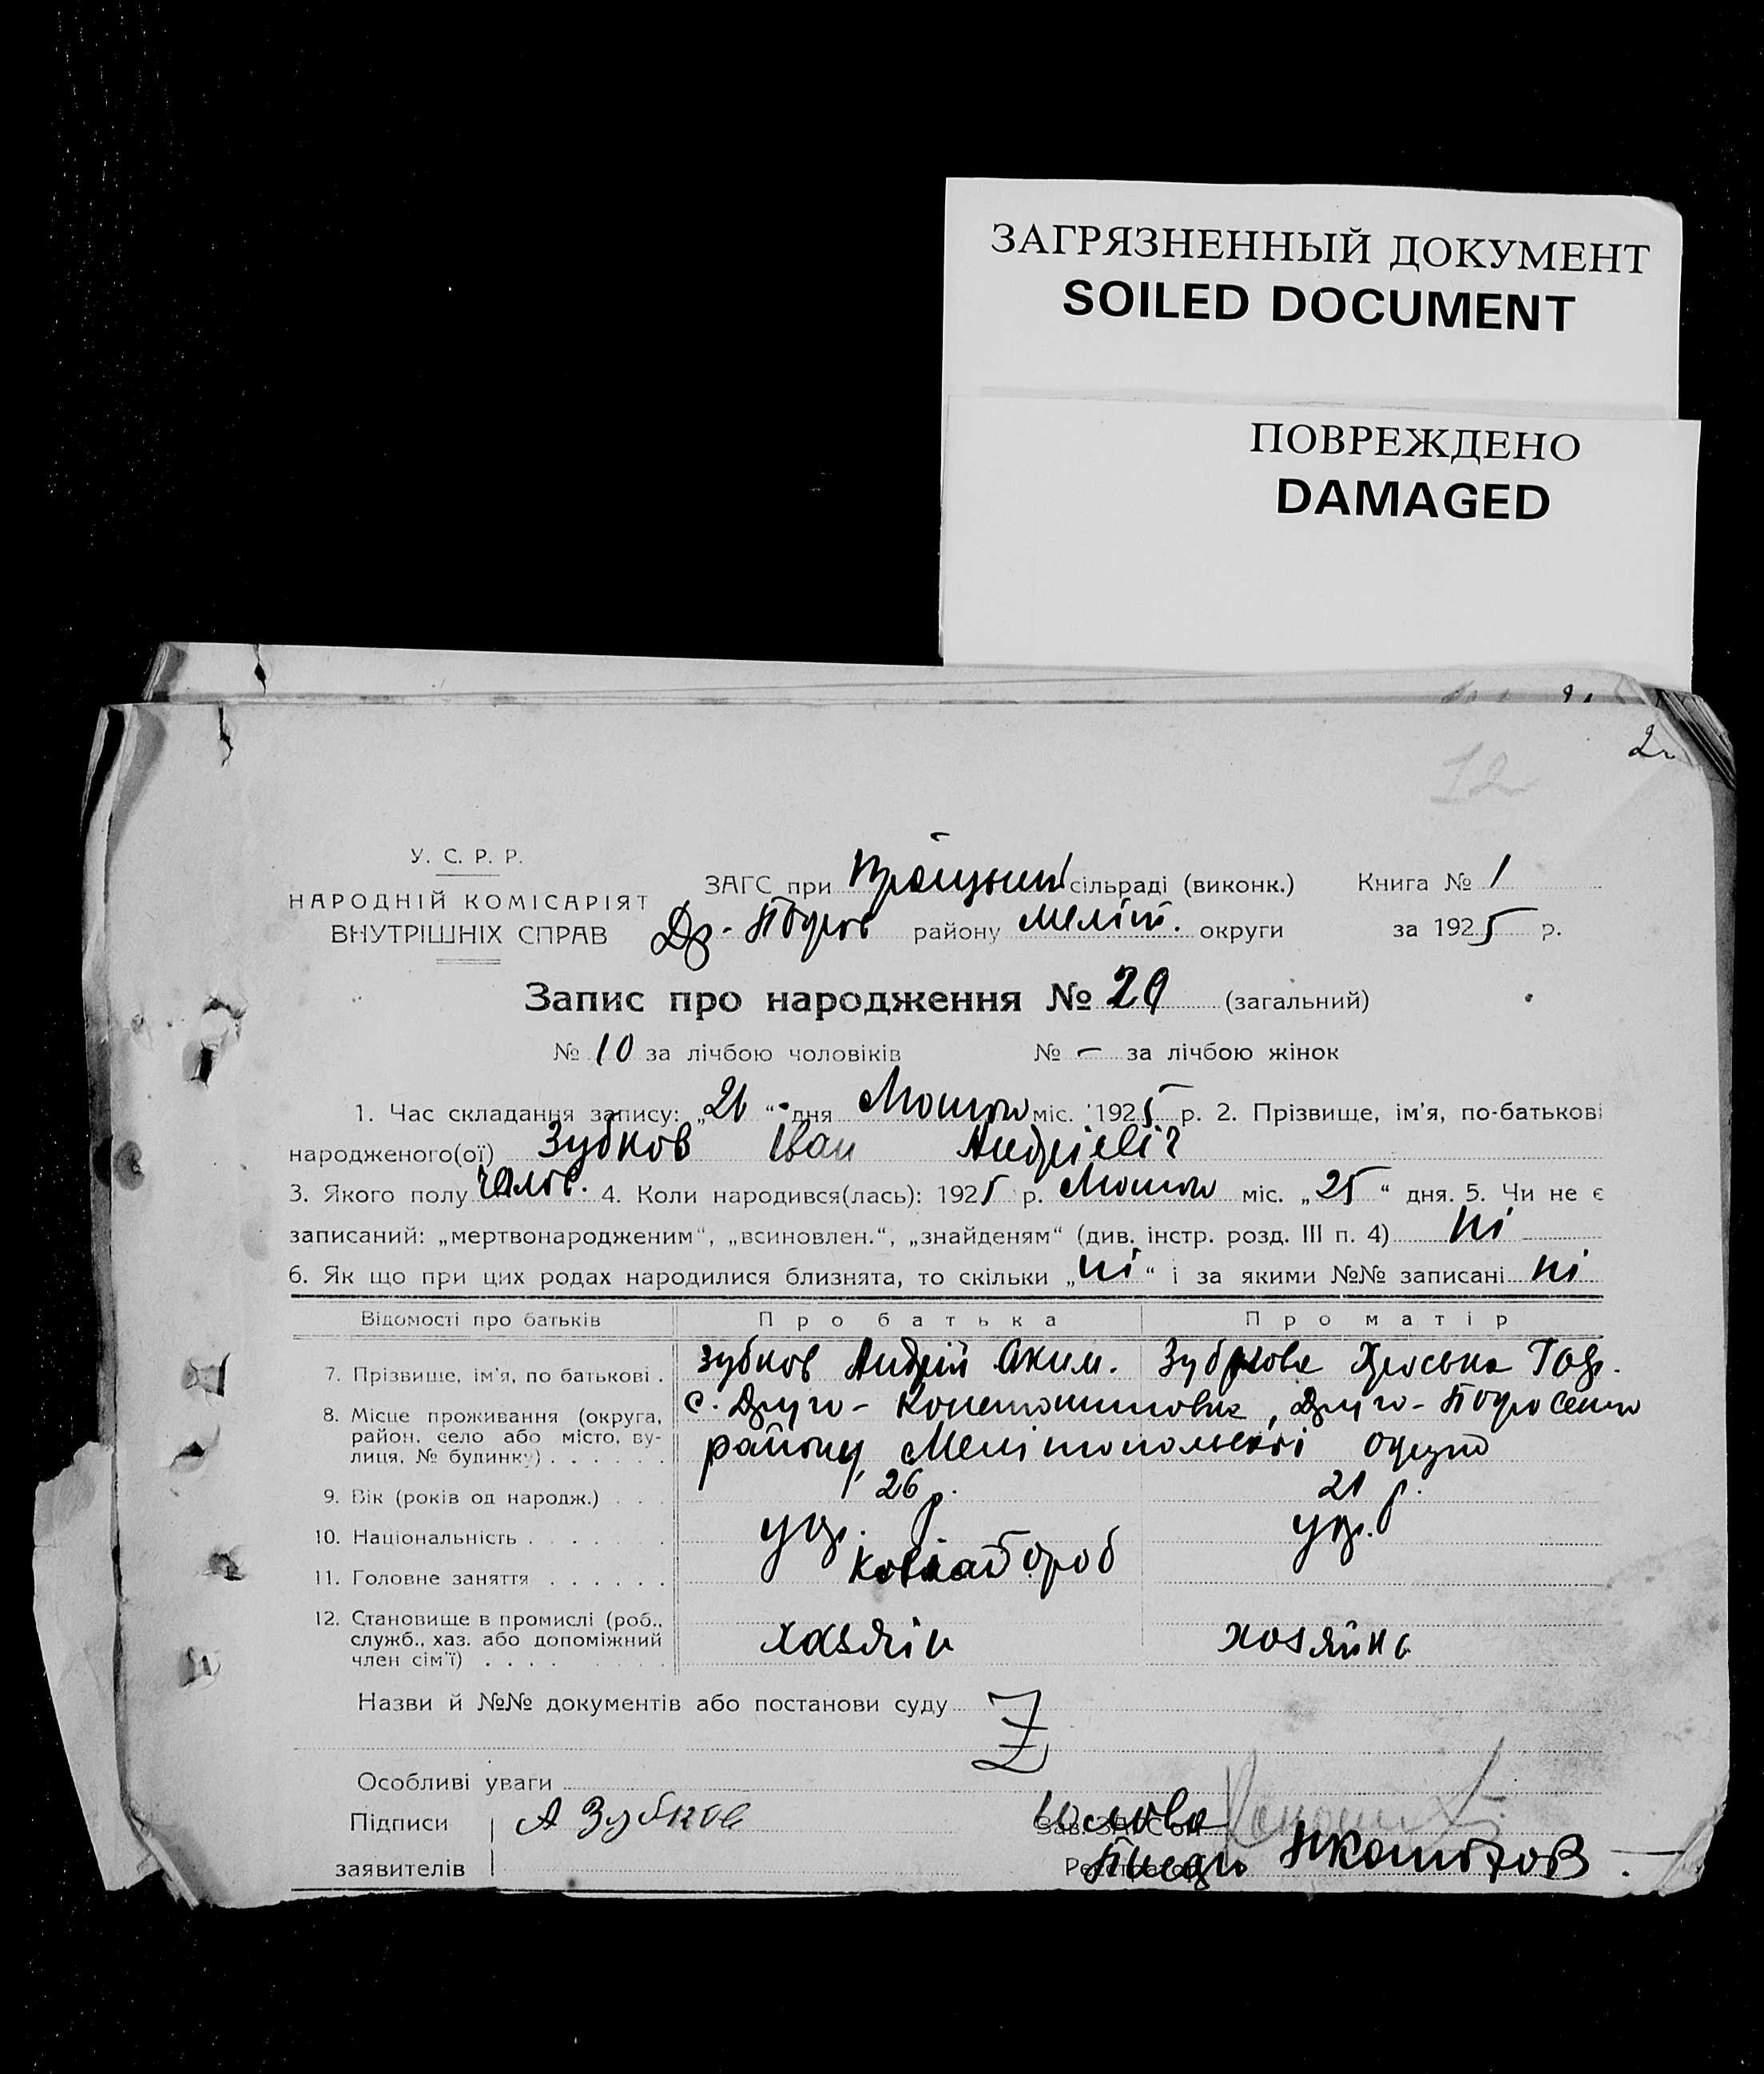 ЗАГРЯЗНЕННЫЙ ДОКУМЕНТ
SOILED DOCUMENT
ПОВРЕЖДЕНО
DAMAGED
12
У. С. Р. Р.
НАРОДНІЙ КОМІСАРІЯТ
ВНУТРІШНІХ СПРАВ
ЗАГС при сільраді (виконк.)
району Меліт. округи
Книга № 1
за 1925 р.
Запис про народження № (загальний)
№ 10 за лічбою чоловіків № – за лічбою жінок
1. Час складання запису: „ “ дня міс. 1925 р. 2. Прізвище, ім'я, по-батькові
народженого(ої) Зубков Іван Андрієвіч
3. Якого полу чолов. 4. Коли народився(лась): 1925 р. міс. „25“ дня. 5. Чи не є
записаний: „мертвонародженим“, „всиновлен.“, „знайденям“ (див. інстр. розд. III п. 4) ні
6. Як що при цих родах народилися близнята, то скільки „ні“ і за якими №№ записані ні
Відомості про батьків Про батька Про матір
7. Прізвише, ім'я, по батькові . Зубков Андрій Аким. Зубкова
8. Місце проживання (округа, район, село або місто, вулиця, № будинку) . . . . . . с. Друго-
району Мелітопольскоі округи
9. Вік (років од народж.) . . . 26 р. 21 р.
10. Національність . . . . . . укр. укр.
11. Головне заняття . . . . . .
12. Становище в промислі (роб., служб., хаз. або допоміжний член сім'ї) . . . . хазяін хозяйка
Назви й №№ документів або постанови суду Z
Особливі уваги
Підписи А Зубков Зав. ЗАГС'ом Голова
заявителів Реєстратор